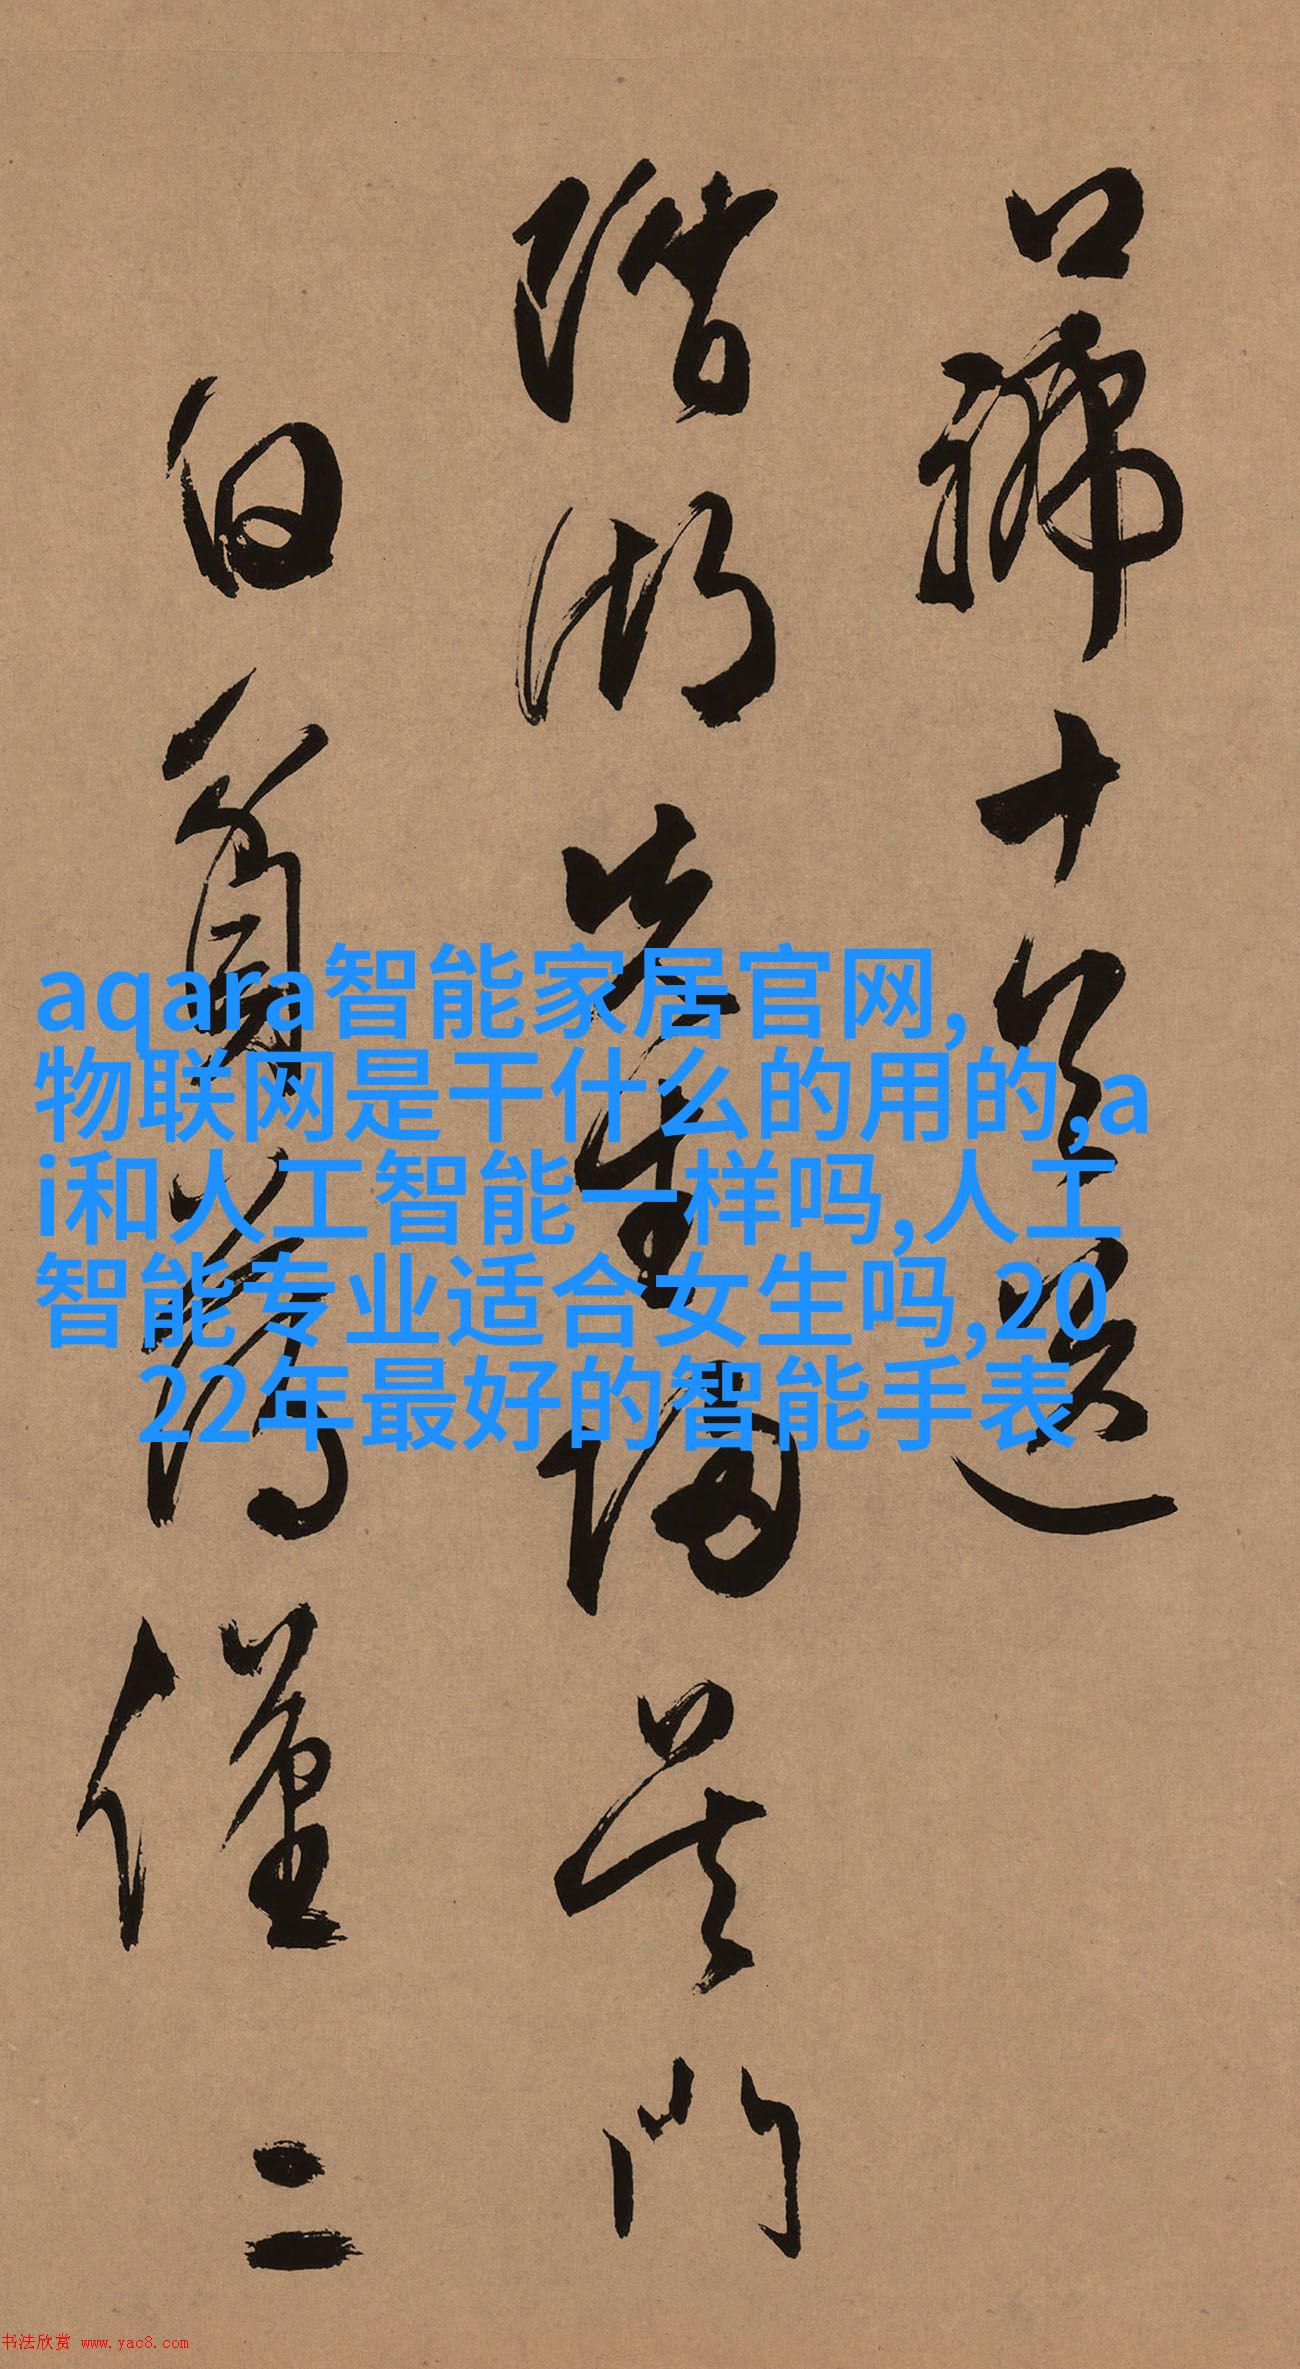 口 十
階湖先生歸吳門
白 僅二
aqara智能家居官网,
物联网是干什么的用的,a
i和人工智能一样吗,人工
智能专业适合女生吗,20
22年最好的智能手表
书法欣赏 www.yac8.com